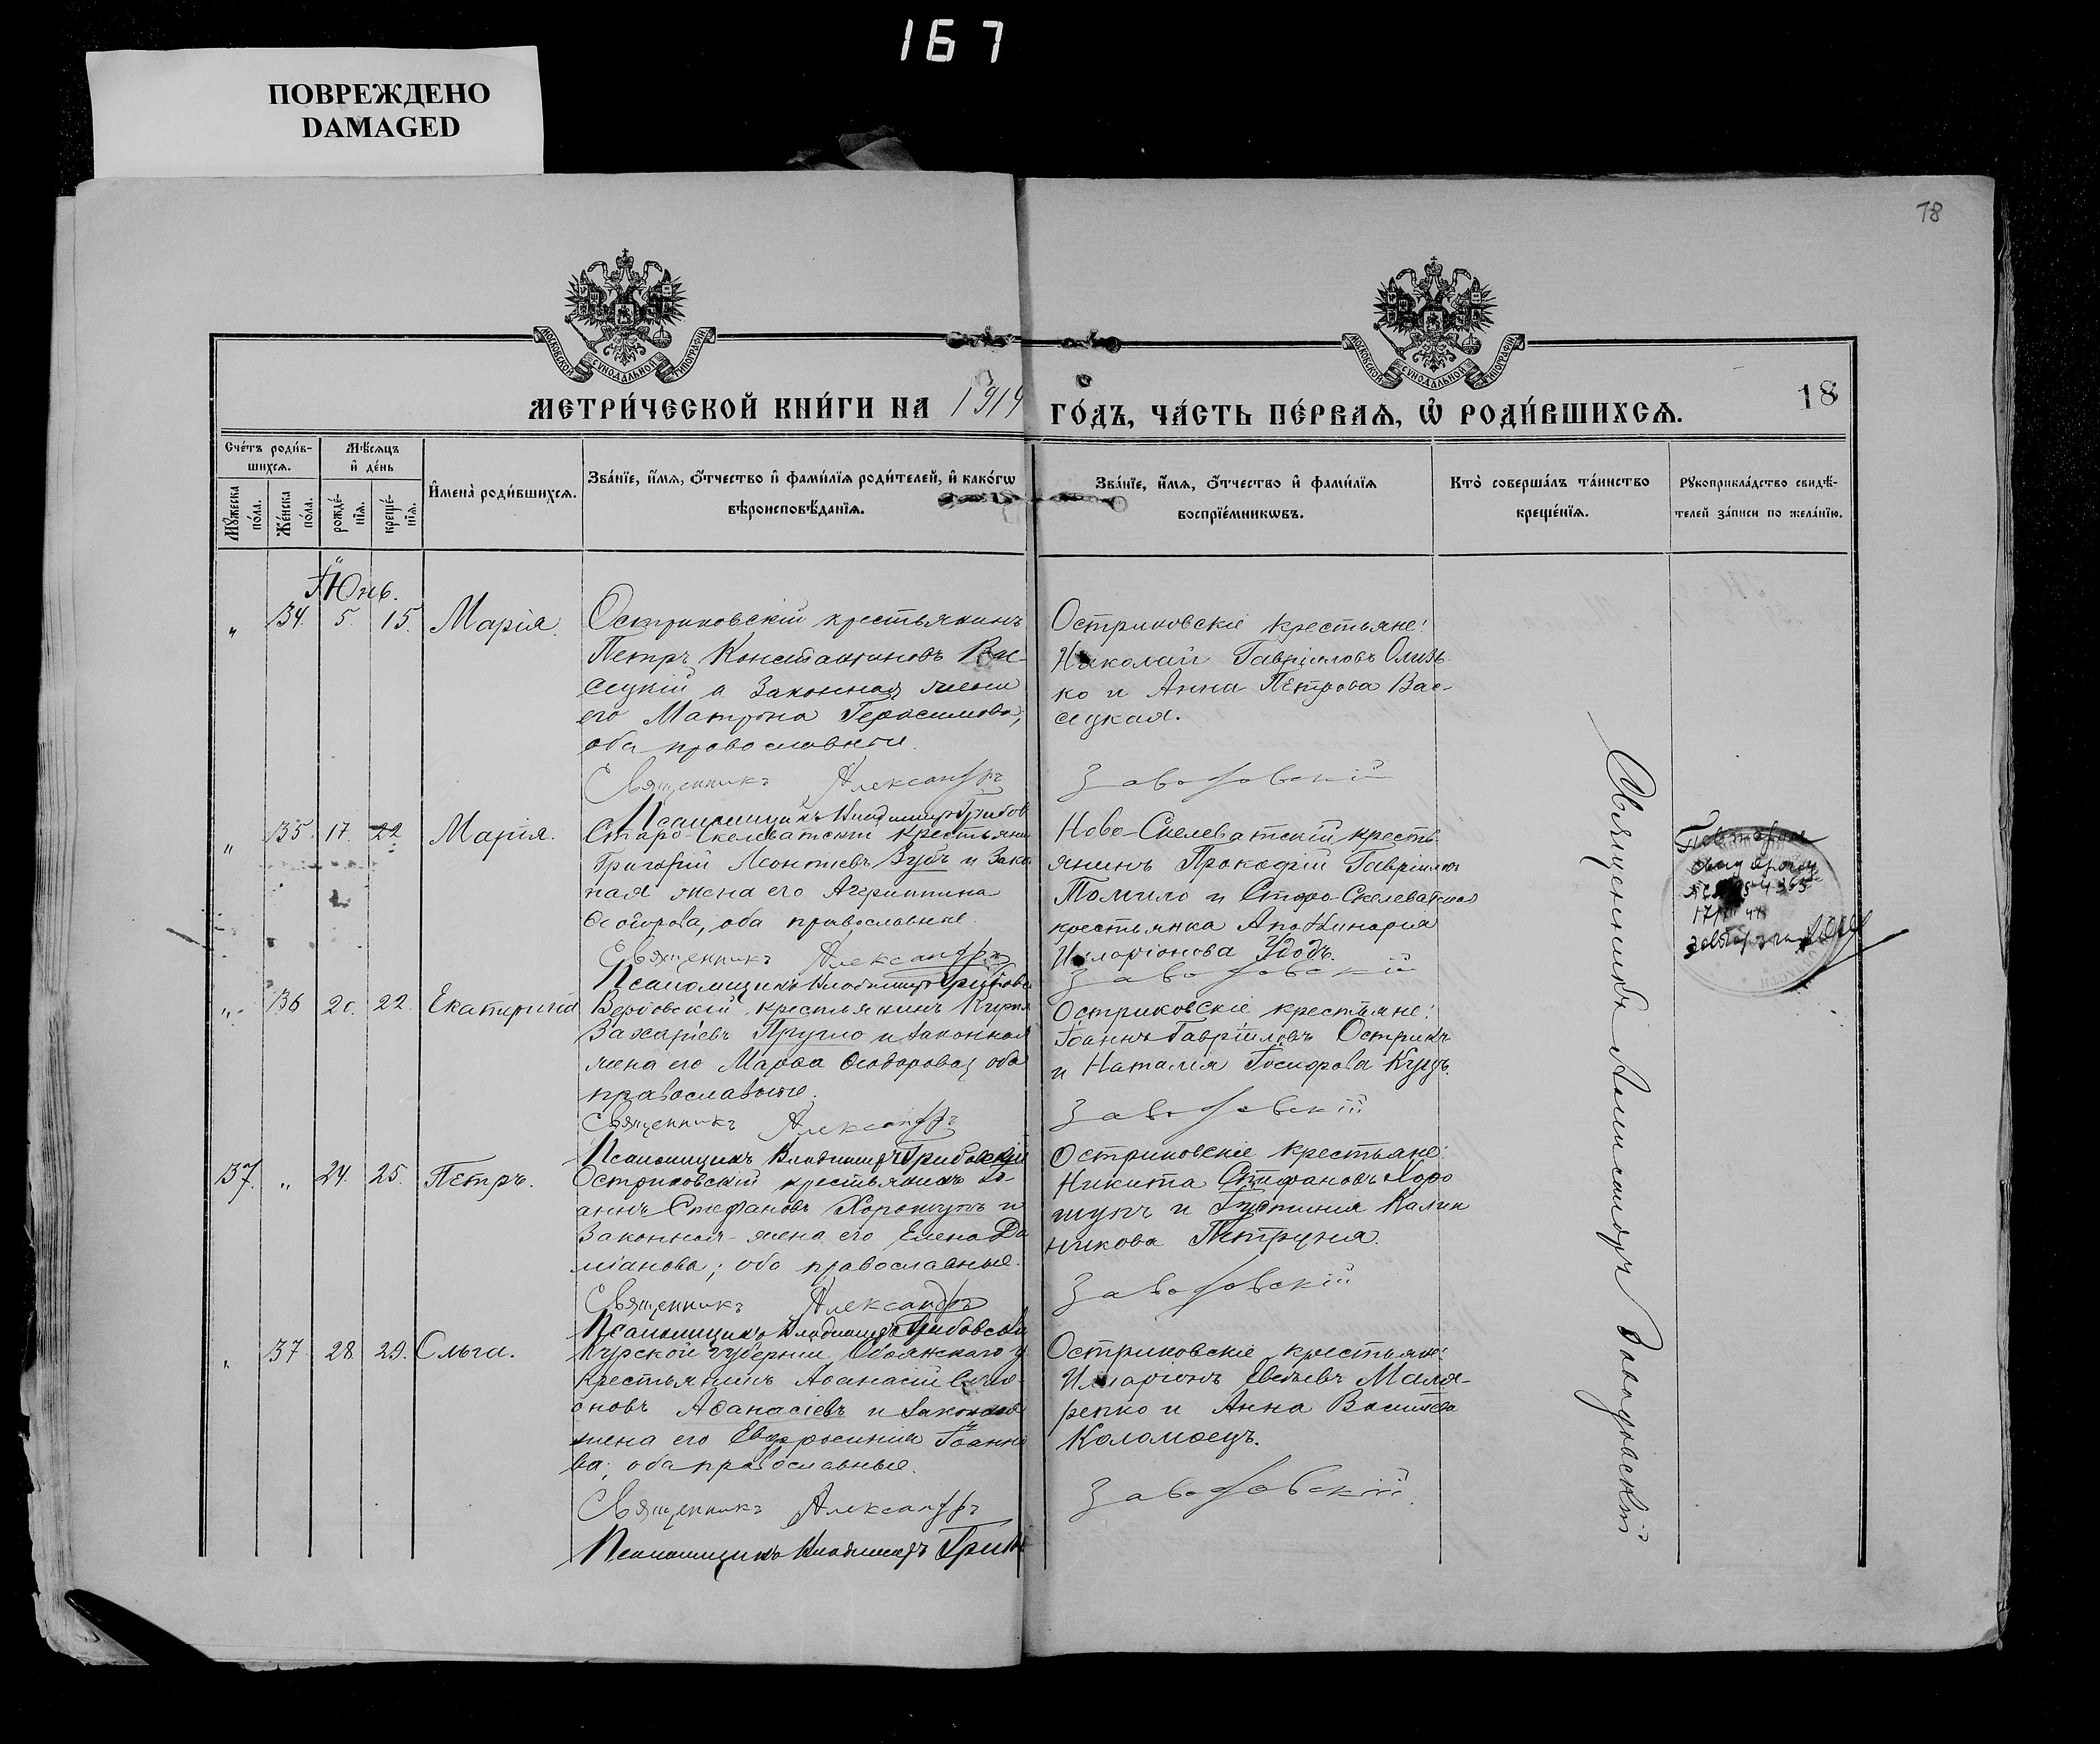 167
ПОВРЕЖДЕНО
DAMAGED
18
МОСКОВСКОЙ СѴНОДАЛЬНОЙ ТИПОГРАФІИ
МОСКОВСКОЙ СѴНОДАЛЬНОЙ ТИПОГРАФІИ
МЕТРИ́ЧЕСКОЙ КНИ́ГИ НА 1914 ГО́ДЪ, ЧА́СТЬ ПЕ́РВАѦ, Ѡ҆ РОДИ́ВШИХСѦ.
18
Сче́тъ роди́вшихсѧ.
Мѣ́сѧцъ и҆ де́нь
Мꙋ́жеска по́ла.
Же́нска по́ла.
рожде́нїѧ.
креще́нїѧ.
И҆мена̀ роди́вшихсѧ.
Зва́нїе, и҆́мѧ, ѻ҆́тчество и҆ фами́лїѧ роди́телей, и҆ како́гѡ
вѣроисповѣ́данїѧ.
Зва́нїе, и҆́мѧ, ѻ҆́тчество и҆ фами́лїѧ
воспрїе́мникѡвъ.
Кто̀ соверша́лъ та́инство
креще́нїѧ.
Рꙋкоприкла́дство свидѣ́-
телей за́писи по жела́нїю.
Іюнь.
" 34. 5. 15. Марія.
Остриковскій крестьянинъ
Петръ Константиновъ Вас-
сецкій и законная жена
его Матрона Герасимова,
оба православные.
Священникъ Александръ
Псаломщикъ Владимиръ Грибов
Остриковскіе крестьяне:
Николай Гавріиловъ Олизь-
ко и Анна Петрова Вас-
сецкая.
Заводовскій
" 35. 17. 22 Марія.
Старо-Скелеватскій крестьяни
Григорій Леонтіевъ Зубъ и Зако
ная жена его Агриппина
Ѳеодорова, оба православные.
Священникъ Александръ
Псаломщикъ Владимиръ Грибовс
Ново-Скелеватскій кресть-
янинъ Прокофій Гавріиловъ
Томило и Старо-Скелеватская
крестьянка Аполинарія
Иларіонова Удодъ.
Заводовскій
" 36 20. 22. Екатерина
Вербовскій крестьянинъ Кирил
Захаріевъ Пругло и законная
жена его Марѳа Ѳеодорова, оба
православные.
Священникъ Александръ
Псаломщикъ Владимиръ Грибовскій
Остриковскіе крестьяне:
Іоаннъ Гавріиловъ Острикъ
и Наталія Іосифова Куць.
Заводовскій
37. " 24. 25. Петръ.
Остриковскій крестьянинъ Іо-
аннъ Стефановъ Хорошунъ и
Законная жена его Елена Да
міанова; оба православные.
Священникъ Александръ
Псаломщикъ Владимиръ Грибовскій
Остриковскіе крестьяне:
Никита Стефановъ Хоро
шунъ и Іустинія Калин
никова Петруня.
Заводовскій
" 37 28. 29. Ольга.
Курской губерніи Обоянскаго у
крестьянинъ Аѳанасій Симе-
оновъ Аѳанасіевъ и законная
жена его Евфросинія Іоанно
ва, оба православные.
Священникъ Александръ
Псаломщикъ Владимиръ Гриб
Остриковскіе крестьяне:
Иларіонъ Евсеевъ Маля-
ренко и Анна Васильева
Коломоецъ.
Заводовскій
Священникъ Александръ Заводовскій